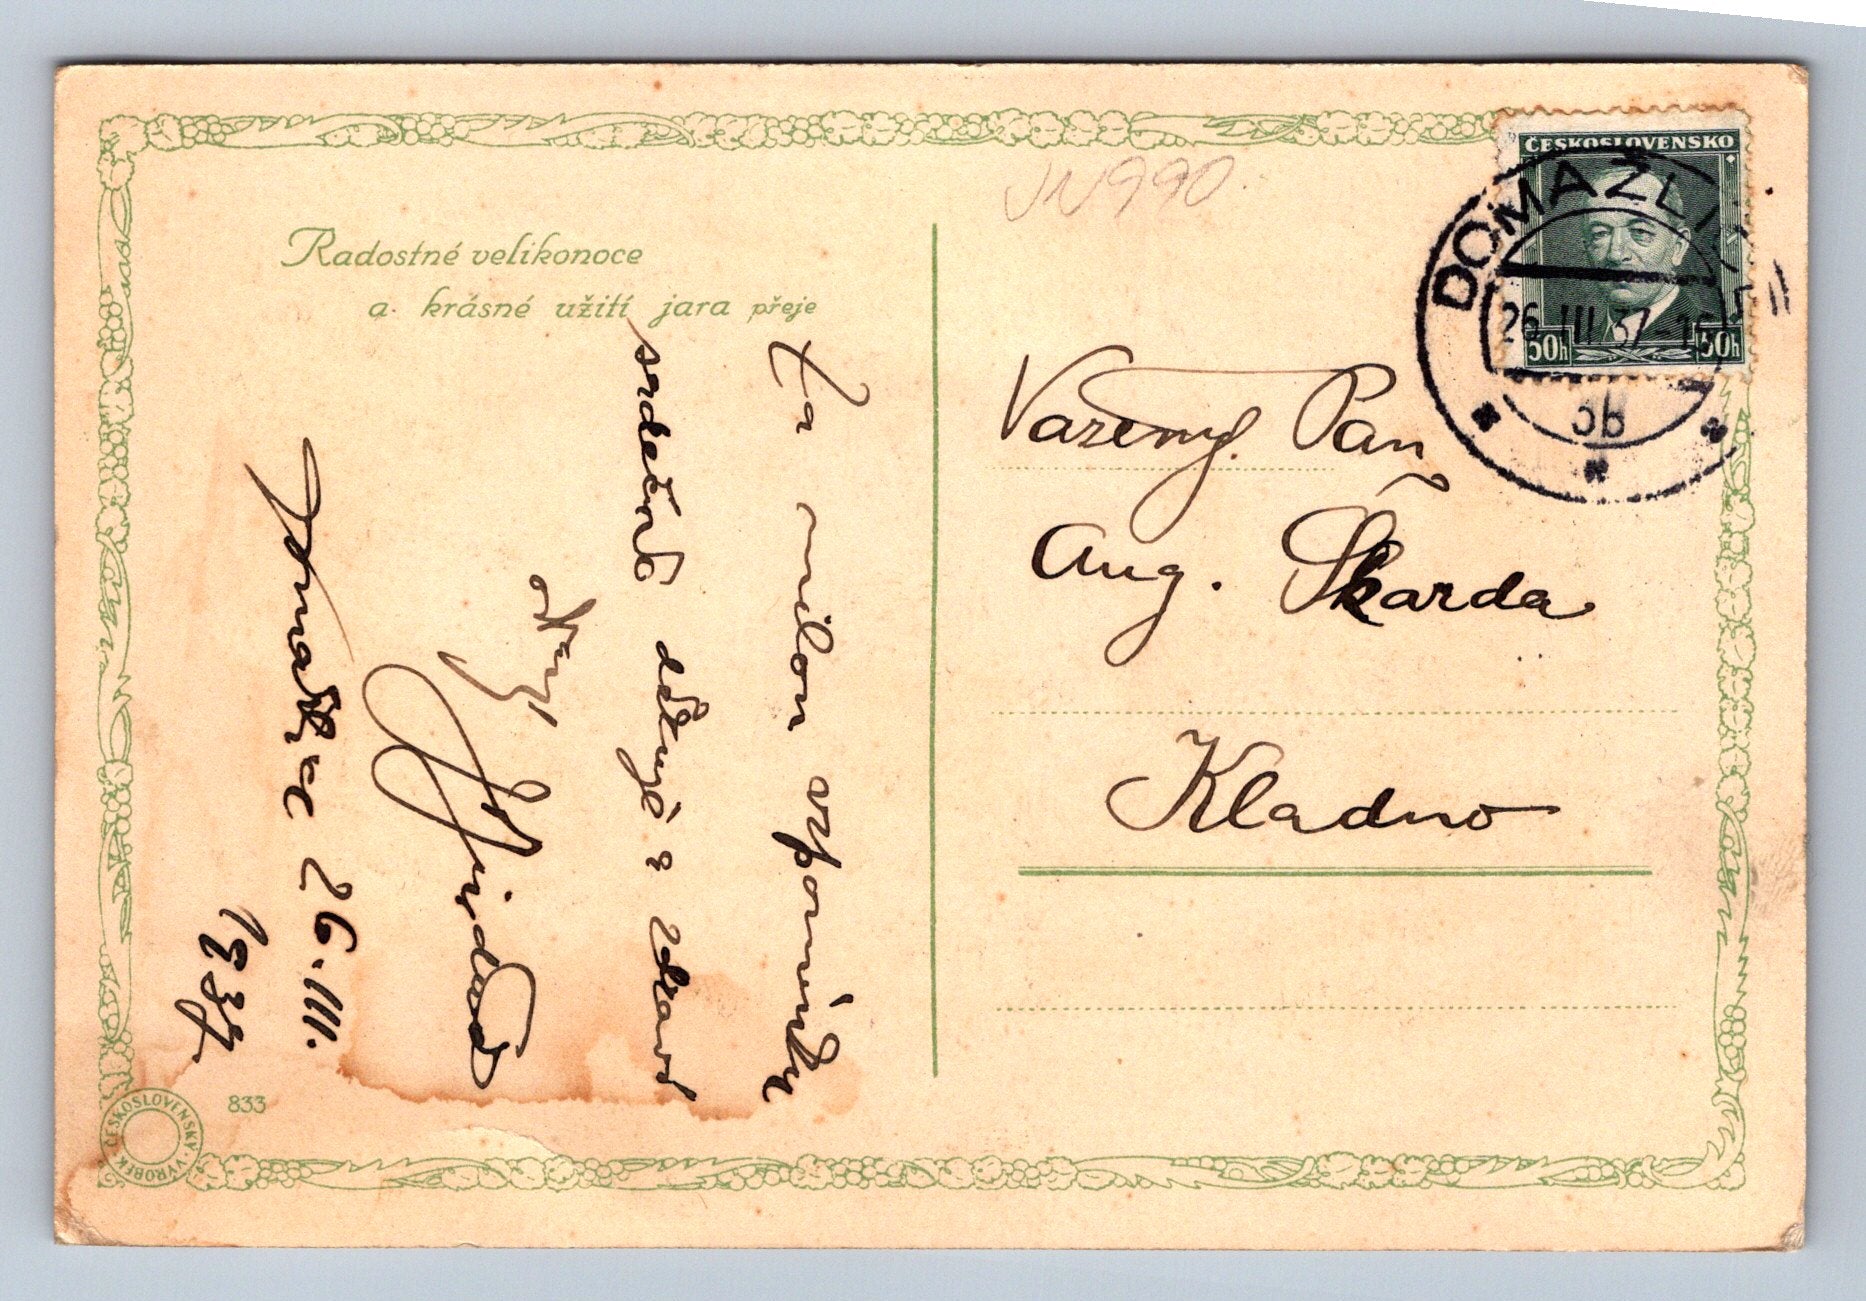 Radostné velikonoce
a krásné užití jara přeje
Za milou vzpomínku
srdečně děkuje a zdraví
26.III.
1937.
833
ČESKOSLOVENSKÝ VÝROBEK
JN990
ČESKOSLOVENSKO
50h 50h
DOMAŽLICE
26.III.37
3b
Vážený Pan
Aug. Škarda
Kladno